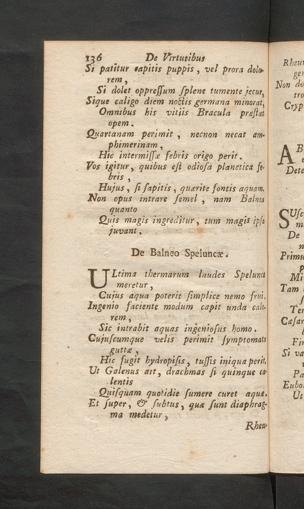 136 De Virtutibus
Si patitur capitis puppis, vel prora dolo-
rem,
Si dolet oppressum splene tumente jecur,
Sique caligo diem noctis germana minorat,
Omnibus his vitiis Bracula præstat
opem.
Quartanam perimit, necnon necat am-
phimerinam,
Hic intermissæ febris origo perit.
Vos igitur, quibus est odiosa planetica fe-
bris,
Hujus, si sapitis, quærite fontis aquam.
Non opus intrare semel, nam Balnea
quanto
Quis magis ingreditur, tum magis ipsa
juvant.
De Balneo Speluncæ.
ULtima thermarum laudes Spelunca
meretur,
Cujus aqua poterit simplice nemo frui.
Ingenio faciente modum capit unda calo-
rem,
Sic intrabit aquas ingeniosus homo.
Cujuscumque velis perimit symptomata
guttæ,
Hic fugit hydropisis, tussis iniqua perit.
Ut Galenus ait, drachmas si quinque
Quisquam quotidie sumere curet aquæ.
Et super, & subtus, quæ sunt diaphrag-
ma medetur,